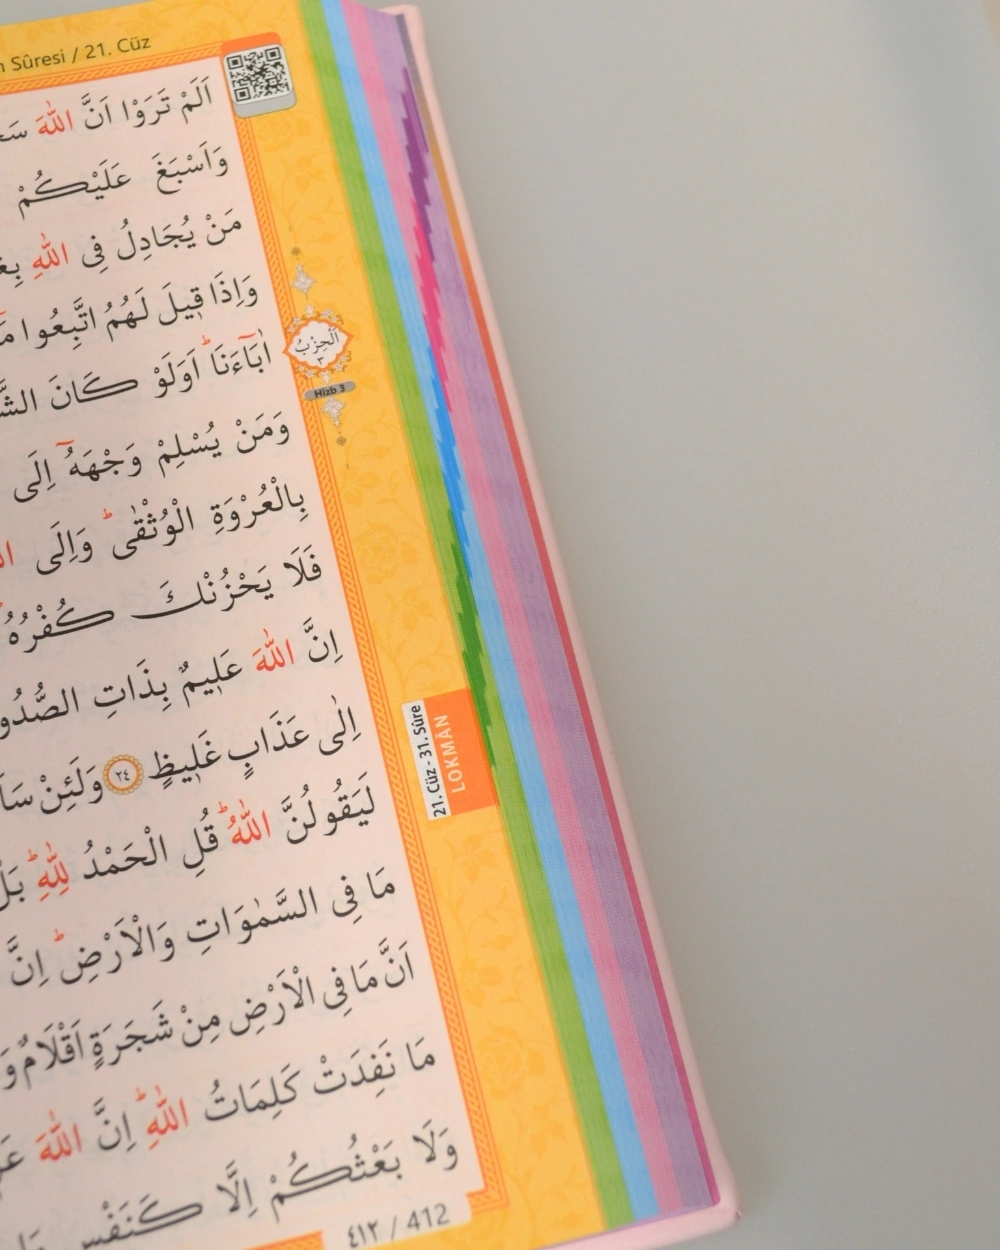 Sûresi / 21. Cüz
اَلَمْ تَرَوْا اَنَّ اللّٰهَ
وَاَسْبَغَ عَلَيْكُمْ
مَنْ يُجَادِلُ فِى اللّٰهِ
وَاِذَا قٖيلَ لَهُمُ اتَّبِعُوا
اٰبَٓاءَنَاؕ اَوَلَوْ كَانَ
وَمَنْ يُسْلِمْ وَجْهَهُٓ اِلَى
بِالْعُرْوَةِ الْوُثْقٰىؕ وَاِلَى
فَلَا يَحْزُنْكَ كُفْرُهُ
اِنَّ اللّٰهَ عَلٖيمٌ بِذَاتِ
اِلٰى عَذَابٍ غَلٖيظٍ ٢٤ وَلَئِنْ
لَيَقُولُنَّ اللّٰهُؕ قُلِ الْحَمْدُ لِلّٰهِؕ
مَا فِى السَّمٰوَاتِ وَالْاَرْضِؕ اِنَّ
اَنَّ مَا فِى الْاَرْضِ مِنْ شَجَرَةٍ اَقْلَامٌ
مَا نَفِدَتْ كَلِمَاتُ اللّٰهِؕ اِنَّ اللّٰهَ
وَلَا بَعْثُكُمْ اِلَّا كَنَفْسٍ
اَلْحِزْبُ
٣
Hizb 3
21. Cüz - 31. Sûre
LOKMÂN
٤١٢ / 412